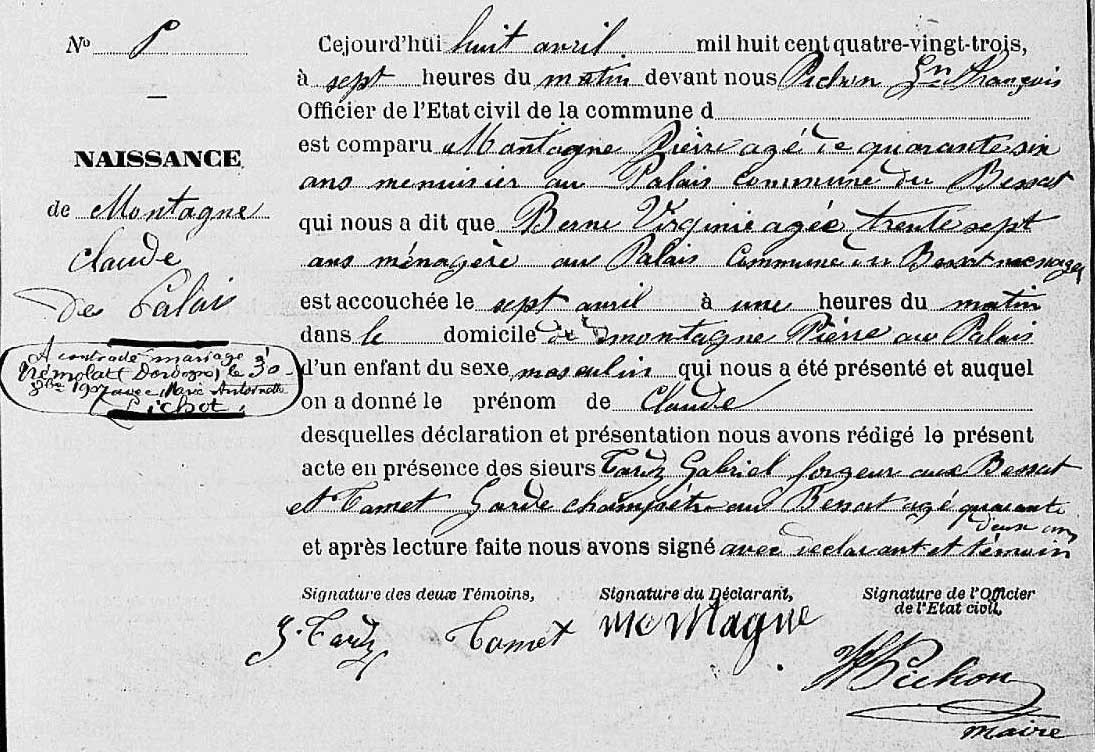 No 8
NAISSANCE
de Montagne
Claude
des Palais
A contracté mariage à
Trémolat (Dordogne) le 30
8bre 1907 avec Marie Antoinette
Pichot.
Cejourd'hui huit avril mil huit cent quatre-vingt-trois,
à sept heures du matin devant nous Pichon Jn François
Officier de l'Etat civil de la commune d
est comparu Montagne Pierre agé de quarante six
ans menuisier au Palais commune du Bessat
qui nous a dit que Berne Virginie agée trente sept
ans ménagère au Palais Commune du Bessat
est accouchée le sept avril à une heures du matin
dans le domicile de Montagne Pierre au Palais
d'un enfant du sexe masculin qui nous a été présenté et auquel
on a donné le prénom de Claude
desquelles déclaration et présentation nous avons rédigé le présent
acte en présence des sieurs Tardy Gabriel forgeur aux Bessat
et Tamet Garde champêtre au Bessat agé quarante
deux ans
et après lecture faite nous avons signé avec declarant et témoin
Signature des deux Témoins,
G. Tardy Tamet
Signature du Déclarant,
Montagne
Signature de l'Officier
de l'Etat civil,
Pichon
maire